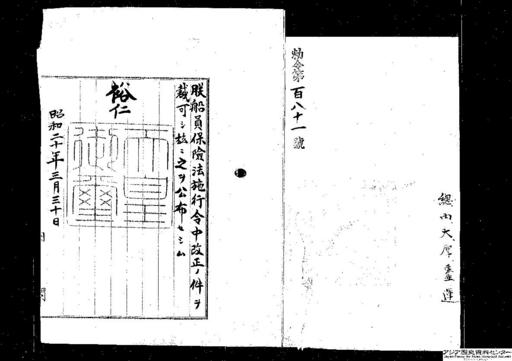 勅令第百八十一號
朕船員保險法施行令中改正ノ件ヲ
裁可シ茲ニ之ヲ公布セシム
裕仁
天皇御璽
昭和二十年三月三十日
内閣
アジア歴史資料センター